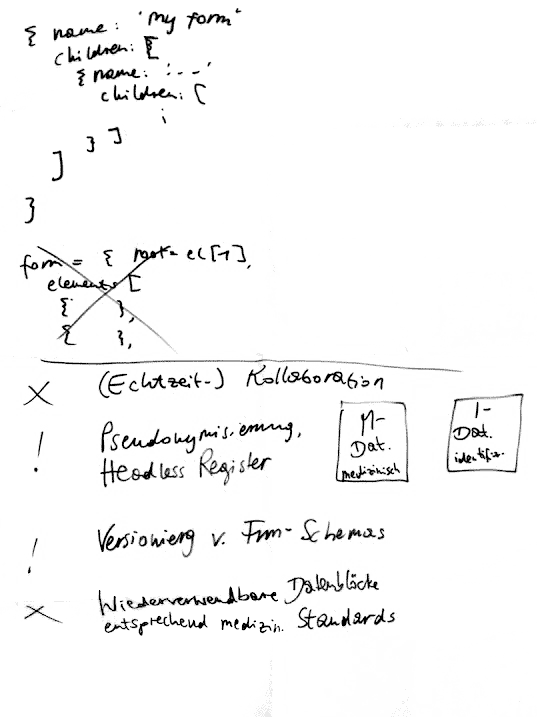 { name: 'my form'
children: [
{ name: '...'
children: [
⋮
} ]
]
}
form = { root = el[1],
elements [
{ },
{ },
X (Echtzeit-) Kollaboration
! Pseudonymisierung,
Headless Register
M-
Dat.
medizinisch
I-
Dat.
identifiz.
! Versionierg v. Form-Schemas
X Wiederverwendbare Datenblöcke
entsprechend medizin. Standards